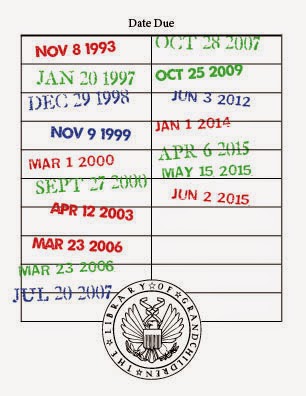 Date Due
NOV 8 1993
JAN 20 1997
DEC 29 1998
NOV 9 1999
MAR 1 2000
SEPT 27 2000
APR 12 2003
MAR 23 2006
MAR 23 2006
JUL 20 2007
OCT 28 2007
OCT 25 2009
JUN 3 2012
JAN 1 2014
APR 6 2015
MAY 15 2015
JUN 2 2015
THE LIBRARY OF GRANDCHILDREN